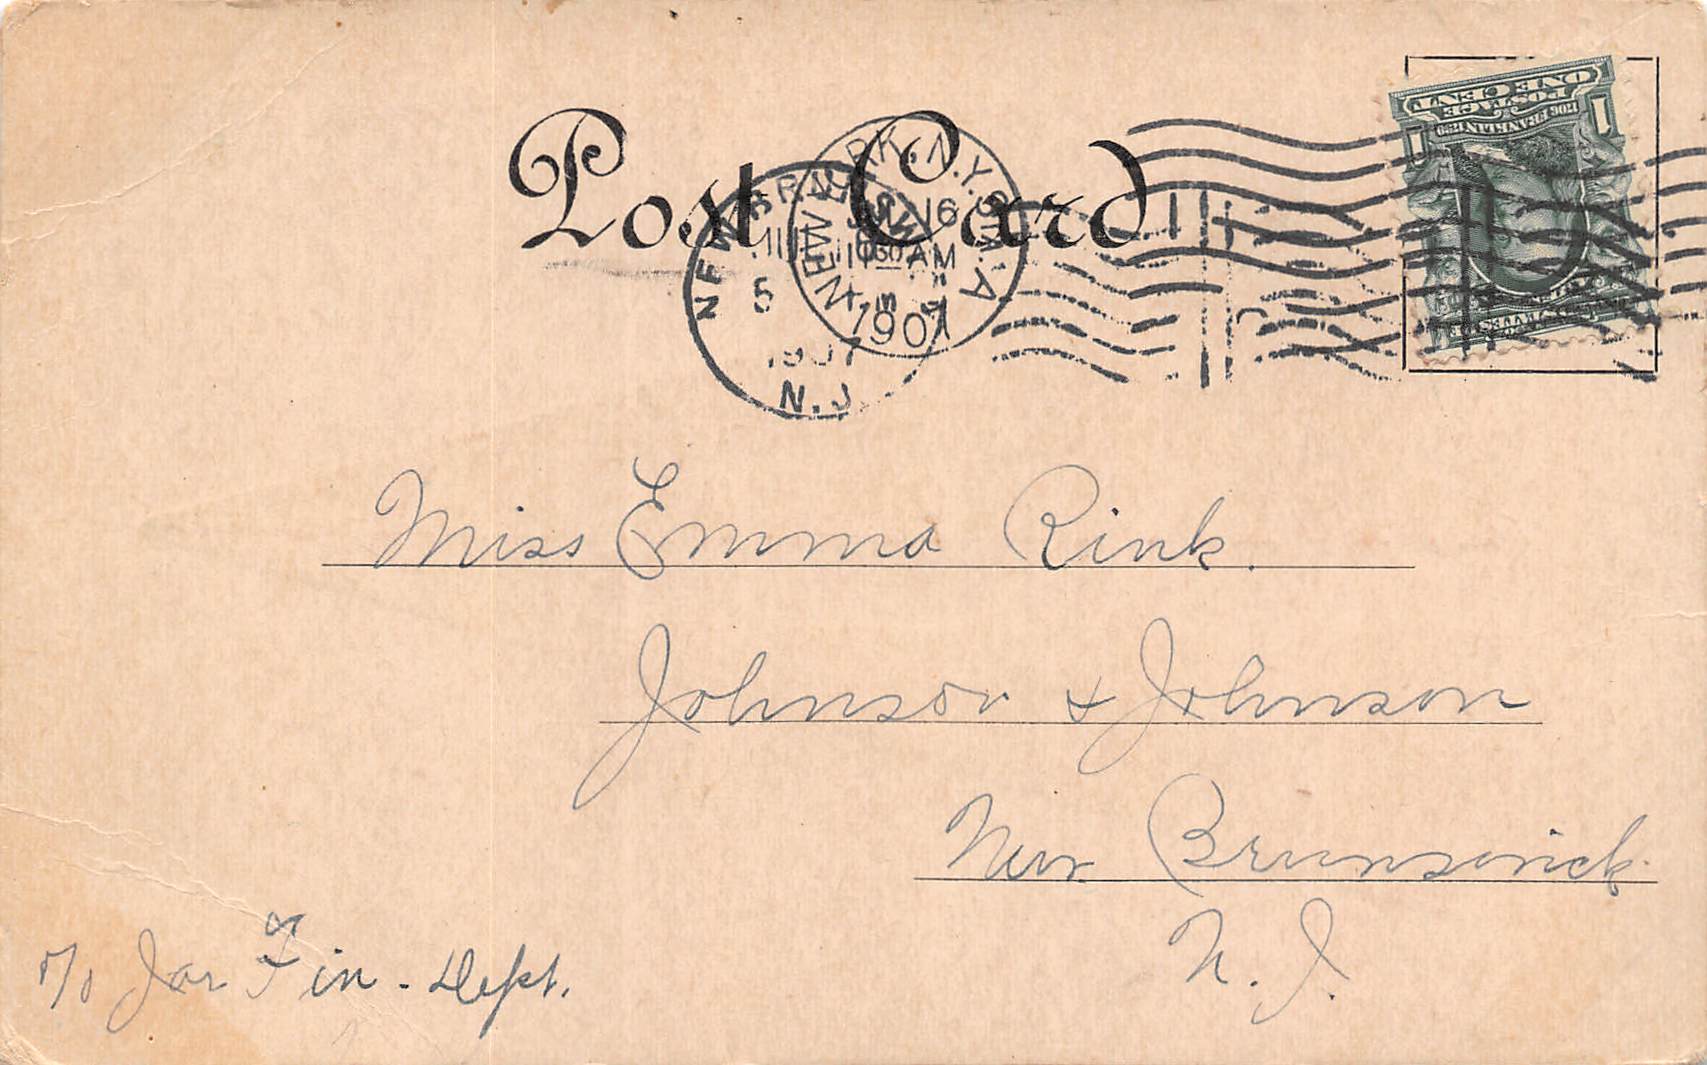 Post Card
NEW YORK, N.Y. STA. A
16
10 30 AM
1907
NEW BRUNSWICK
5
1907
N.J.
1 POSTAGE 1
ONE CENT
1706 FRANKLIN 1790
Miss Emma Rink.
Johnson & Johnson
New Brunswick
N. J.
c/o Jar Fin - Dept.